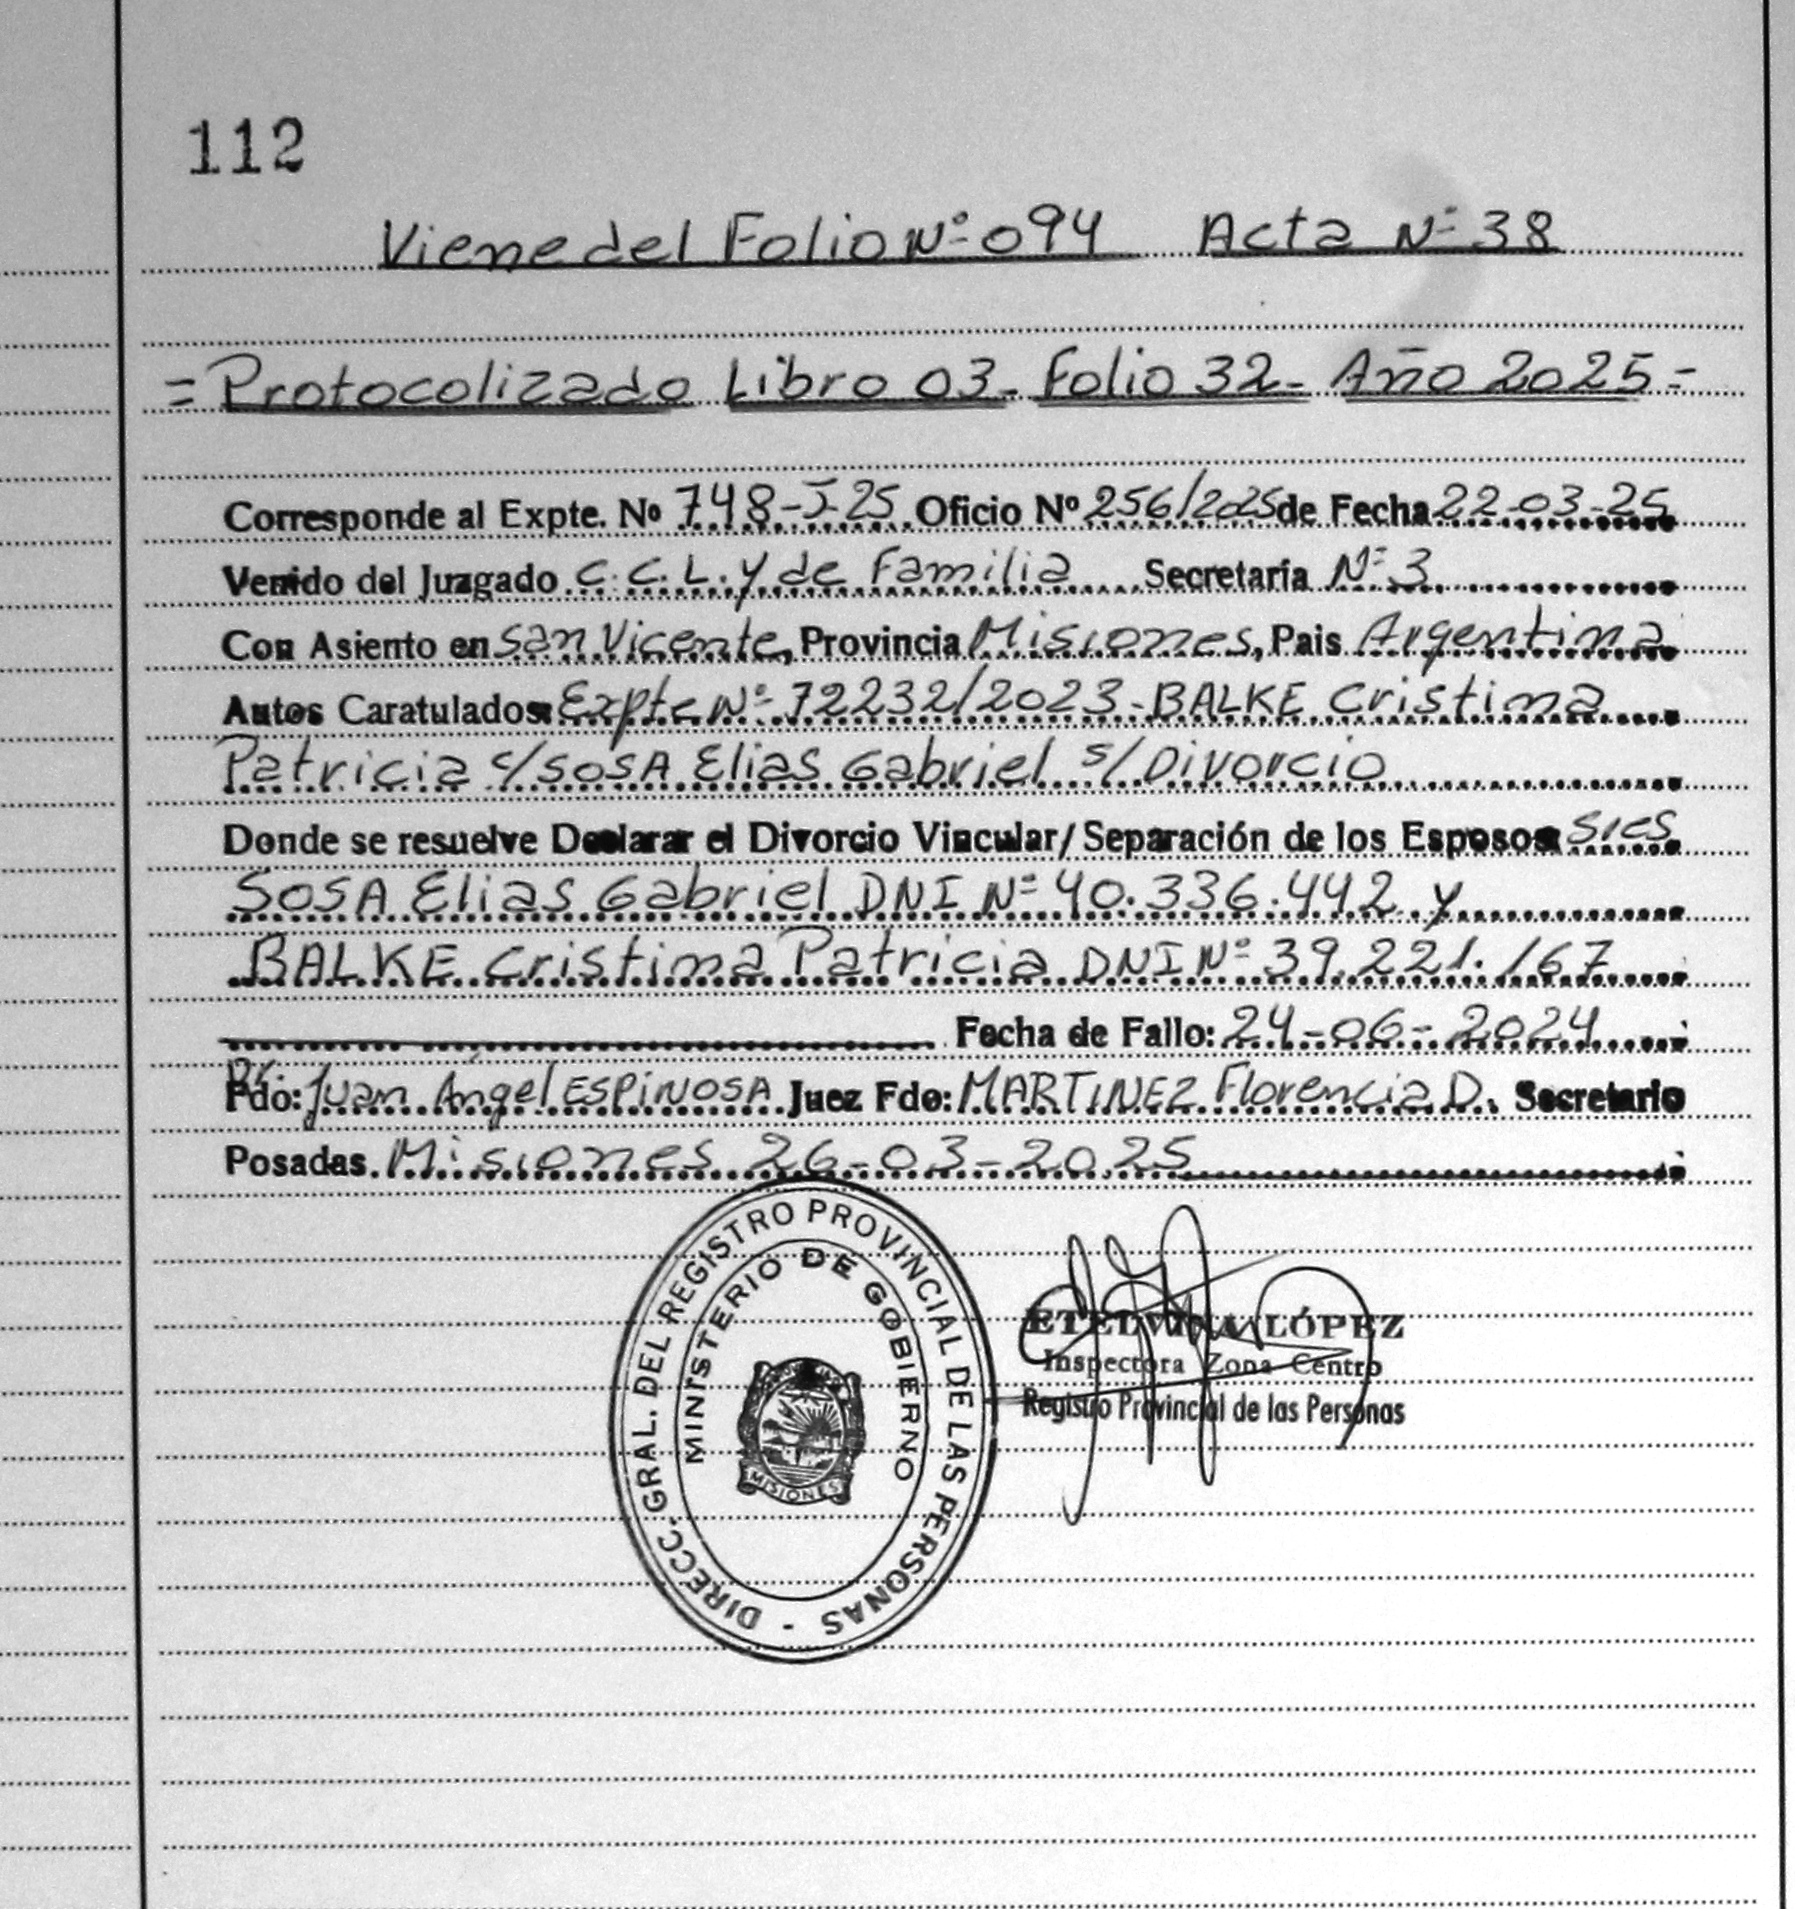 112
Viene del Folio Nº 094 Acta Nº 38
= Protocolizado Libro 03- Folio 32- Año 2025 -
Corresponde al Expte. Nº 748-J-25 Oficio Nº 256/2025 de Fecha 22-03-25
Venido del Juzgado C.C.L. y de Familia Secretaría Nº 3
Con Asiento en San Vicente, Provincia Misiones, Pais Argentina
Autos Caratulados: Expte Nº 72232/2023 - BALKE Cristina
Patricia c/ SOSA Elias Gabriel s/ Divorcio
Donde se resuelve Declarar el Divorcio Vincular/ Separación de los Esposos
SOSA Elias Gabriel DNI Nº 40.336.442 y
BALKE Cristina Patricia DNI Nº 39.221.167
Fecha de Fallo: 24-06-2024
Fdo: Dr. Juan Ángel ESPINOSA Juez Fdo: MARTINEZ Florencia D. Secretario
Posadas. Misiones 26-03-2025
DIRECC. GRAL. DEL REGISTRO PROVINCIAL DE LAS PERSONAS -
MINISTERIO DE GOBIERNO
MISIONES
ETELVINA LÓPEZ
Inspectora Zona Centro
Registro Provincial de las Personas